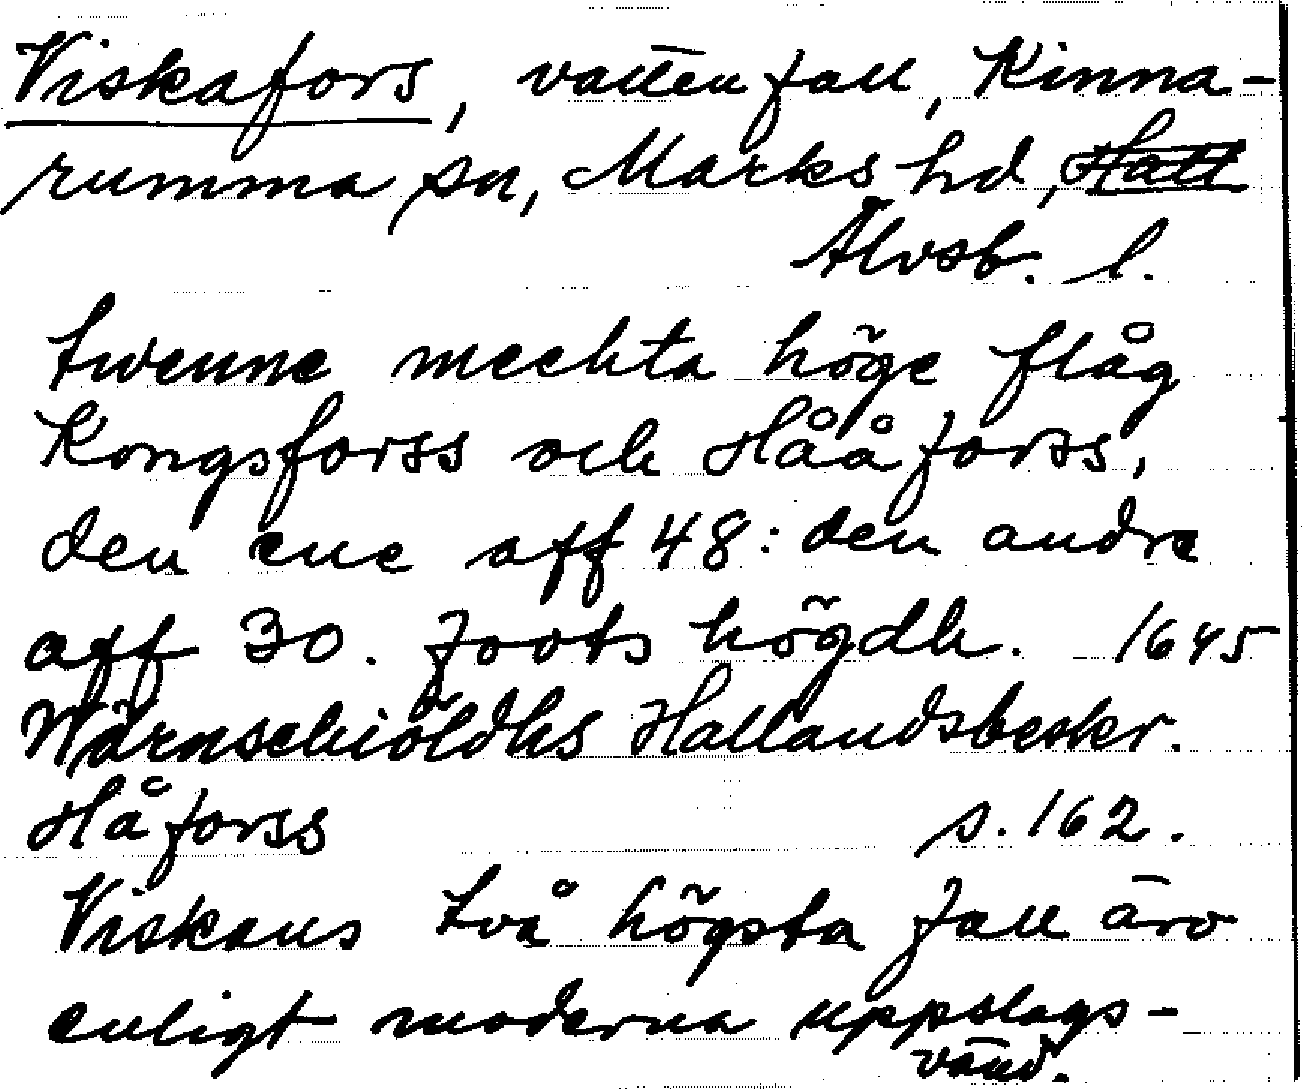 Viskafors, vattenfall, Kinna-
rumma sn, Marks hd, Hall
Älvsb. l.
twenne mechta höge flåg
Kongsforss och Håå forss,
den ene aff 48: den andre
aff 30. foots högdh. 1645
Wärnschiöldhs Hallandsbeskr.
Håforss s. 162.
Viskans två högsta fall äro
enligt moderna uppslags-
vänd.